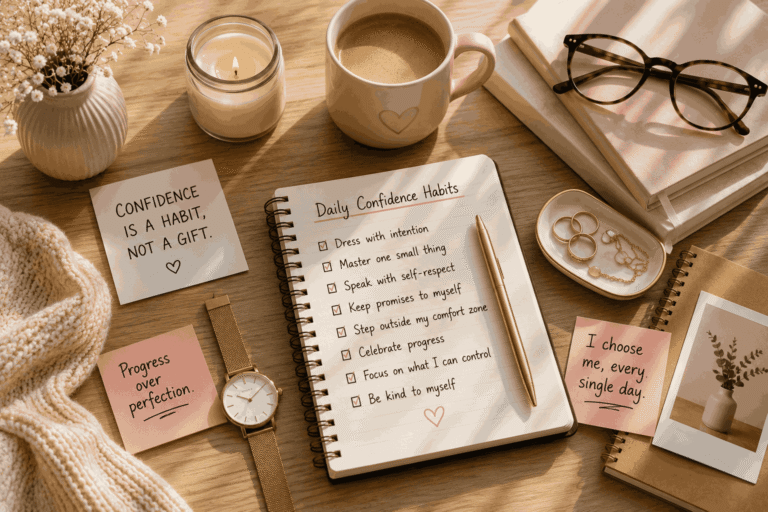 CONFIDENCE
IS A HABIT,
NOT A GIFT.
Daily Confidence Habits
Dress with intention
Master one small thing
Speak with self-respect
Keep promises to myself
Step outside my comfort zone
Celebrate progress
Focus on what I can control
Be kind to myself
Progress
over
perfection.
I choose
me, every
single day.